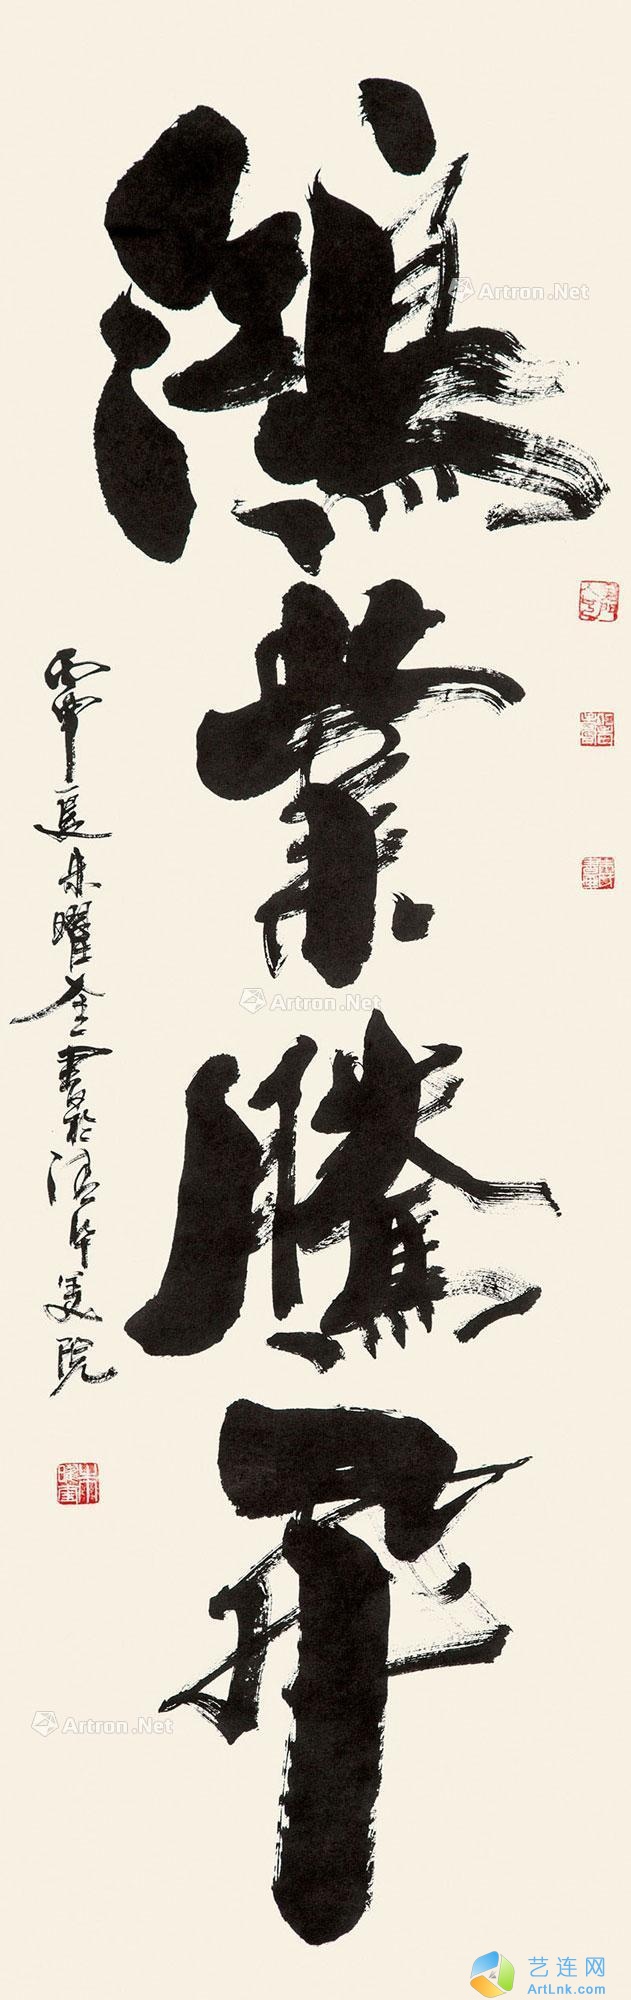 鴻業騰飛
丙申夏朱曜奎書於清华美院
朱曜奎
Artron.Net
Artron.Net
Artron.Net
艺连网
ArtLnk.com